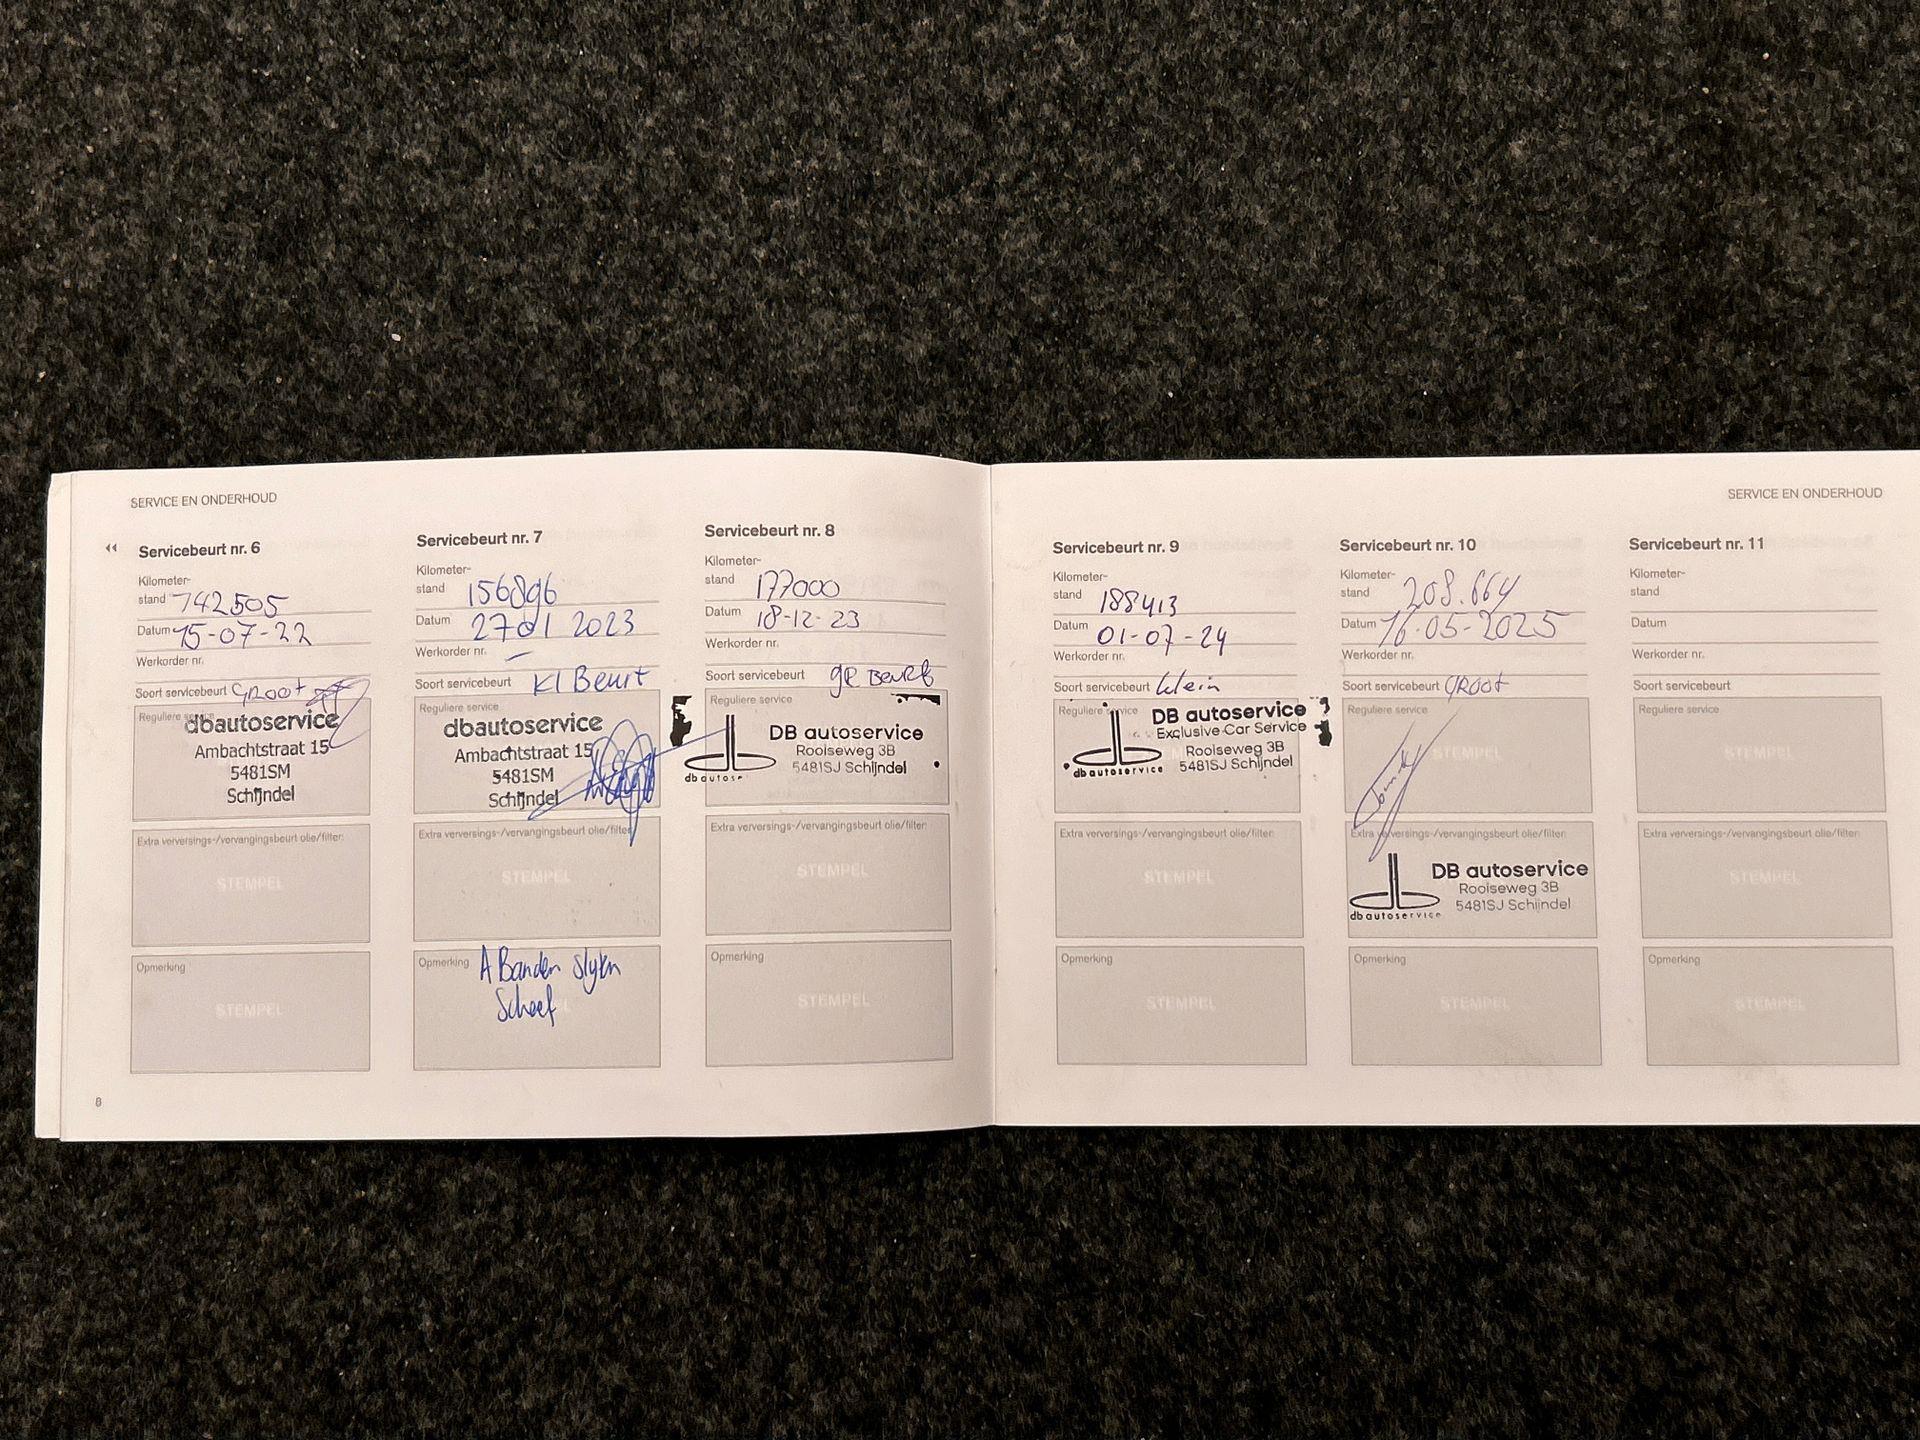 SERVICE EN ONDERHOUD
Servicebeurt nr. 6
Kilometer-
stand 142505
Datum 15-07-22
Werkorder nr.
Soort servicebeurt GROOT
Reguliere service
dbautoservice
Ambachtstraat 15
5481SM
Schijndel
Extra verversings-/vervangingsbeurt olie/filter:
STEMPEL
Opmerking
STEMPEL
8
Servicebeurt nr. 7
Kilometer-
stand 156896
Datum 27 01 2023
Werkorder nr. -
Soort servicebeurt Kl Beurt
Reguliere service
dbautoservice
Ambachtstraat 15
5481SM
Schijndel
Extra verversings-/vervangingsbeurt olie/filter:
STEMPEL
Opmerking A Banden slijten
Scheef
Servicebeurt nr. 8
Kilometer-
stand 177000
Datum 18-12-23
Werkorder nr.
Soort servicebeurt gr Beurt
Reguliere service
DB autoservice
Rooiseweg 3B
5481SJ Schijndel
Extra verversings-/vervangingsbeurt olie/filter:
STEMPEL
Opmerking
STEMPEL
SERVICE EN ONDERHOUD
Servicebeurt nr. 9
Kilometer-
stand 188413
Datum 01-07-24
Werkorder nr.
Soort servicebeurt klein
Reguliere service
DB autoservice
Exclusive Car Service
Rooiseweg 3B
5481SJ Schijndel
dbautoservice
Extra verversings-/vervangingsbeurt olie/filter:
STEMPEL
Opmerking
STEMPEL
Servicebeurt nr. 10
Kilometer-
stand 208.664
Datum 16-05-2025
Werkorder nr.
Soort servicebeurt GROOT
Reguliere service
Extra verversings-/vervangingsbeurt olie/filter:
DB autoservice
Rooiseweg 3B
5481SJ Schijndel
dbautoservice
Opmerking
STEMPEL
Servicebeurt nr. 11
Kilometer-
stand
Datum
Werkorder nr.
Soort servicebeurt
Reguliere service
STEMPEL
Extra verversings-/vervangingsbeurt olie/filter:
STEMPEL
Opmerking
STEMPEL